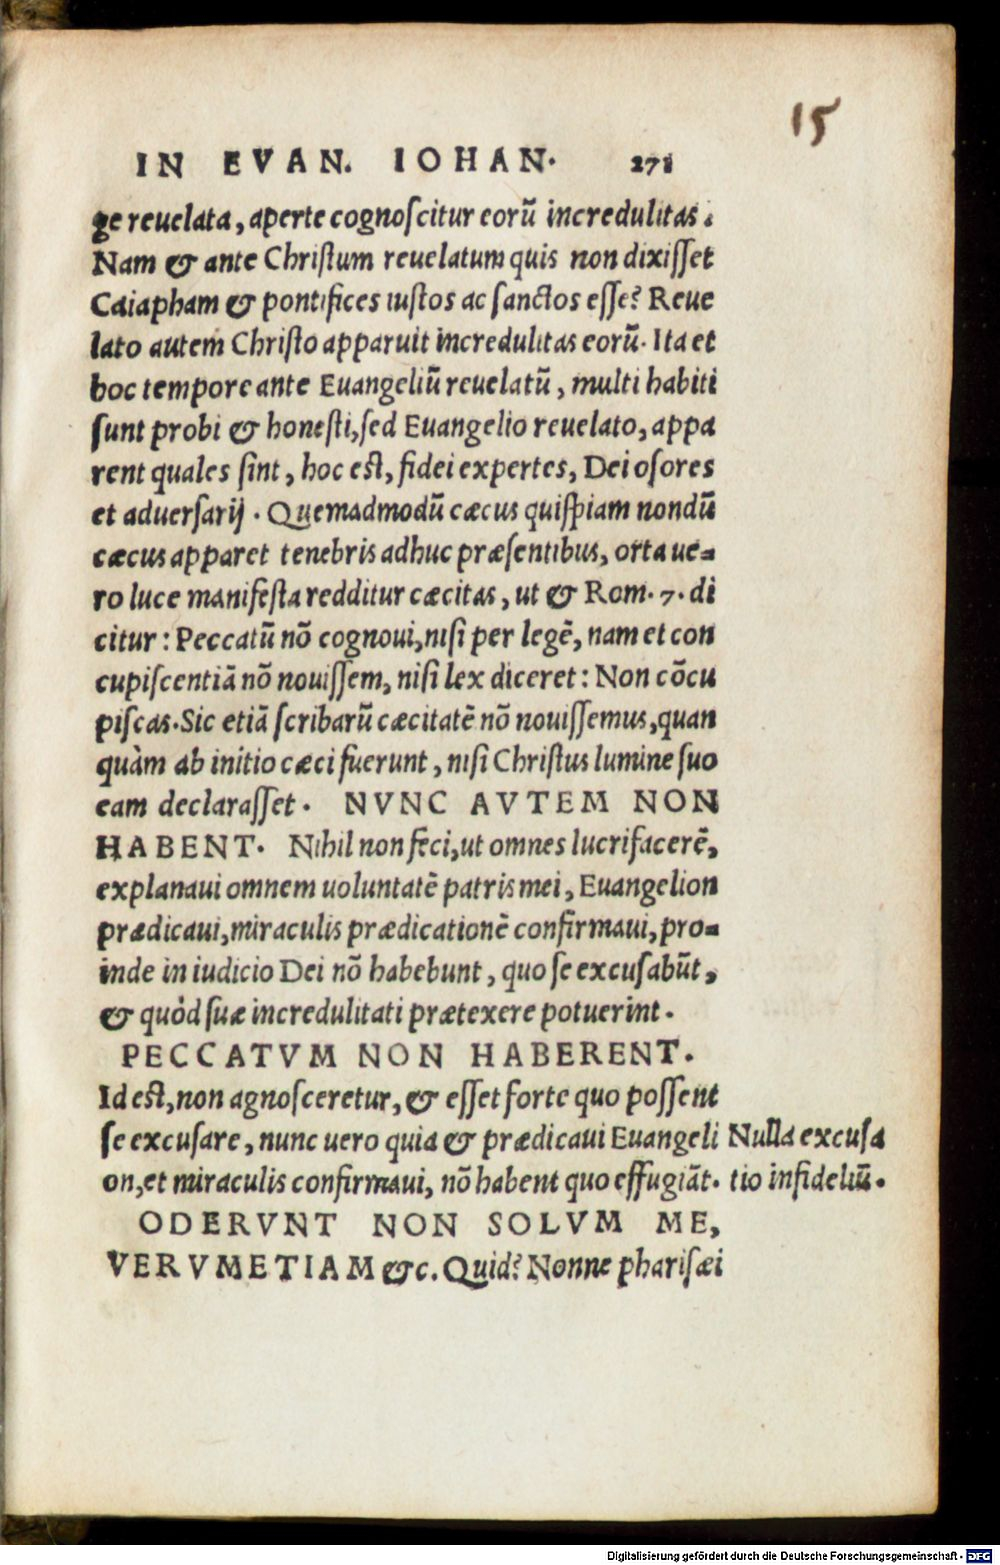 15
IN EVAN. IOHAN. 271
ge reuelata, aperte cognoscitur eorũ incredulitas.
Nam & ante Christum reuelatum quis non dixisset
Caiapham & pontifices iustos ac sanctos esse? Reue
lato autem Christo apparuit incredulitas eorũ. Ita et
hoc tempore ante Euangeliũ reuelatũ, multi habiti
sunt probi & honesti, sed Euangelio reuelato, appa
rent quales sint, hoc est, fidei expertes, Dei osores
et aduersarij. Quemadmodũ cæcus quispiam nondũ
cæcus apparet tenebris adhuc præsentibus, orta ue-
ro luce manifesta redditur cæcitas, ut & Rom. 7. di
citur: Peccatũ nõ cognoui, nisi per legẽ, nam et con
cupiscentiã nõ nouissem, nisi lex diceret: Non cõcu
piscas. Sic etiã scribarũ cæcitatẽ nõ nouissemus, quan
quàm ab initio cæci fuerunt, nisi Christus lumine suo
eam declarasset. NVNC AVTEM NON
HABENT. Nihil non feci, ut omnes lucrifacerẽ,
explanaui omnem uoluntatẽ patris mei, Euangelion
prædicaui, miraculis prædicationẽ confirmaui, pro-
inde in iudicio Dei nõ habebunt, quo se excusabũt,
& quòd suæ incredulitati prætexere potuerint.
PECCATVM NON HABERENT.
Id est, non agnosceretur, & esset forte quo possent
se excusare, nunc uero quia & prædicaui Euangeli
on, et miraculis confirmaui, nõ habent quo effugiãt.
Nulla excusa
tio infideliũ.
ODERVNT NON SOLVM ME,
VERVMETIAM &c. Quid? Nonne pharisæi
Digitalisierung gefördert durch die Deutsche Forschungsgemeinschaft - DFG